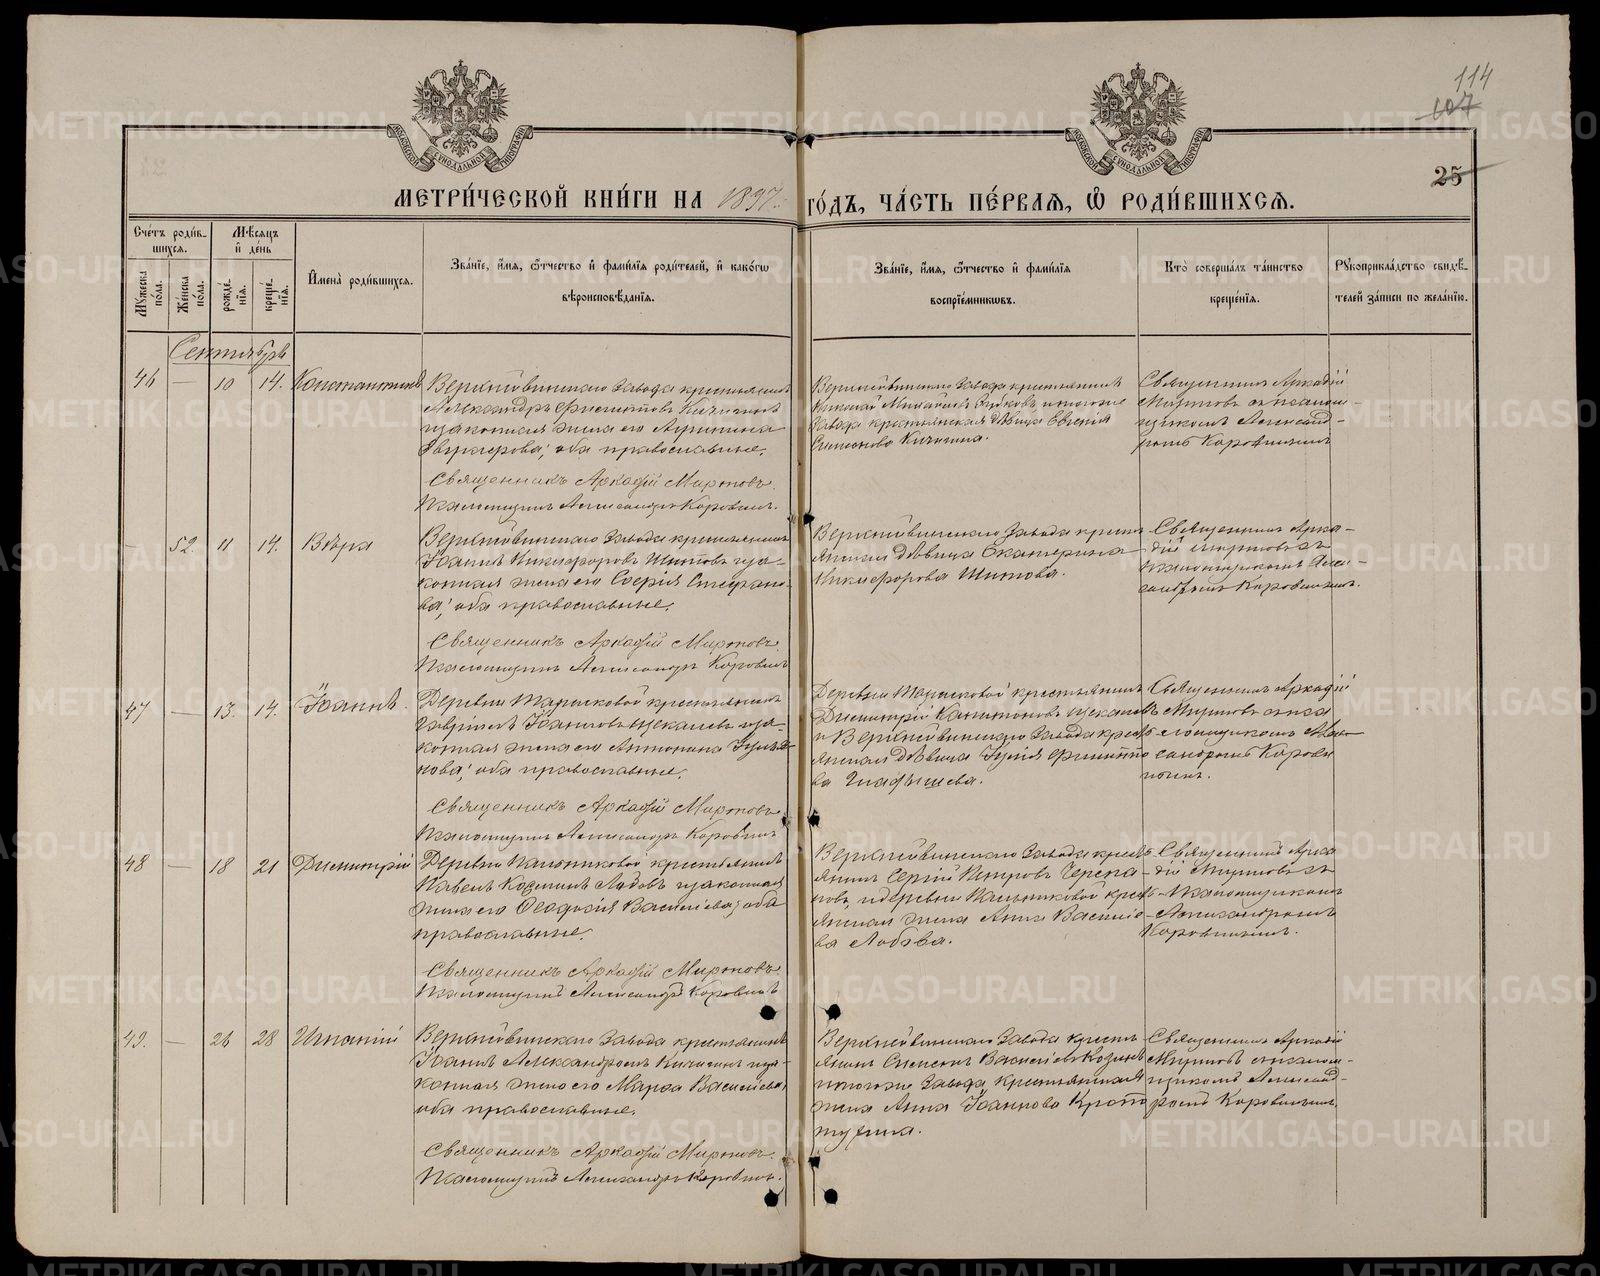 114
107
25
МЕТРИ́ЧЕСКОЙ КНИ́ГИ НА 1897 ГО́ДЪ, ЧА́СТЬ ПЕ́РВАЯ, Ѽ РОДИ́ВШИХСЯ.
Сче́тъ роди́вшихся.
Мѣ́сяцъ и҆ де́нь
Мꙋ́жеска по́ла.
Же́нска по́ла.
рожде́нїя.
креще́нїя.
И҆мена̀ роди́вшихся.
Зва́нїе, и҆́мя, ѻ҆́тчество и҆ фами́лїя роди́телей, и҆ како́гѡ
вѣроисповѣ́данїя.
Зва́нїе, и҆́мя, ѻ҆́тчество и҆ фами́лїя
воспрїе́мникѡвъ.
Кто̀ соверша́лъ та́инство
креще́нїя.
Рꙋкоприкла́дство свидѣ́-
телей за́писи по жела́нїю.
Сентябрь
46 — 10 14. Константинъ
Верхнейвинскаго Завода крестьянинъ
Александръ Кичигинъ
и законная жена его
оба православные.
Священникъ Аркадій Мироновъ
Псаломщикъ Александръ Коровинъ.
Верхнейвинскаго Завода крестьянинъ
Николай Михайловъ и тогоже
завода крестьянская дѣвица Евгенія
Симонова Кичигина.
Священникъ Аркадій
Мироновъ съ псалом-
щикомъ Александ-
ромъ Коровинымъ
— 52 11 14. Вѣра
Верхнейвинскаго Завода крестьянинъ
Іоаннъ Никифоровъ Шитовъ и за-
конная жена его Софія Стефано-
ва; оба православные.
Священникъ Аркадій Мироновъ
Псаломщикъ Александръ Коровинъ
Верхнейвинскаго Завода кресть
янская дѣвица Екатерина
Никифорова Шитова.
Священникъ Арка-
дій Мироновъ съ
псаломщикомъ Алек-
сандромъ Коровинымъ.
47 — 13. 14. Іоаннъ.
Деревни Тарасковой крестьянинъ
Гавріилъ Іоанновъ Щекалевъ и за-
конная жена его Антонина
оба православные.
Священникъ Аркадій Мироновъ
Псаломщикъ Александръ Коровинъ
Деревни Тарасковой крестьянинъ
Димитрій
и Верхнейвинскаго Завода кресть
янская дѣвица Юлія
ва Гладышева.
Священникъ Аркадій
Мироновъ съ пса
ломщикомъ Алек-
сандромъ Корови
нымъ.
48 — 18 21 Димитрій
Деревни Пальниковой крестьянинъ
Павелъ Козминъ Лобовъ и законная
жена его Ѳеодосія Васильева; оба
православные.
Священникъ Аркадій Мироновъ
Псаломщикъ Александръ Коровинъ
Верхнейвинскаго Завода кресть
янинъ Сергій Петровъ Черепа-
новъ, и деревни Пальниковой крес
янская жена Анна Василье
ва Лобова.
Священникъ Арка
дій Мироновъ съ
псаломщикомъ
Александромъ
Коровинымъ.
49. — 26 28 Игнатій
Верхнейвинскаго Завода крестьянинъ
Іоаннъ Александровъ Кичигинъ и за-
конная жена его Марѳа Васильева;
оба православные.
Священникъ Аркадій Мироновъ.
Псаломщикъ Александръ Коровинъ.
Верхнейвинскаго Завода кресть
янинъ Симеонъ Васильевъ
тогоже Завода, крестьянская
жена Анна Іоаннова
Священникъ Аркадій
Мироновъ съ псалом-
щикомъ Александ-
ромъ Коровинымъ.
METRIKI.GASO-URAL.RU